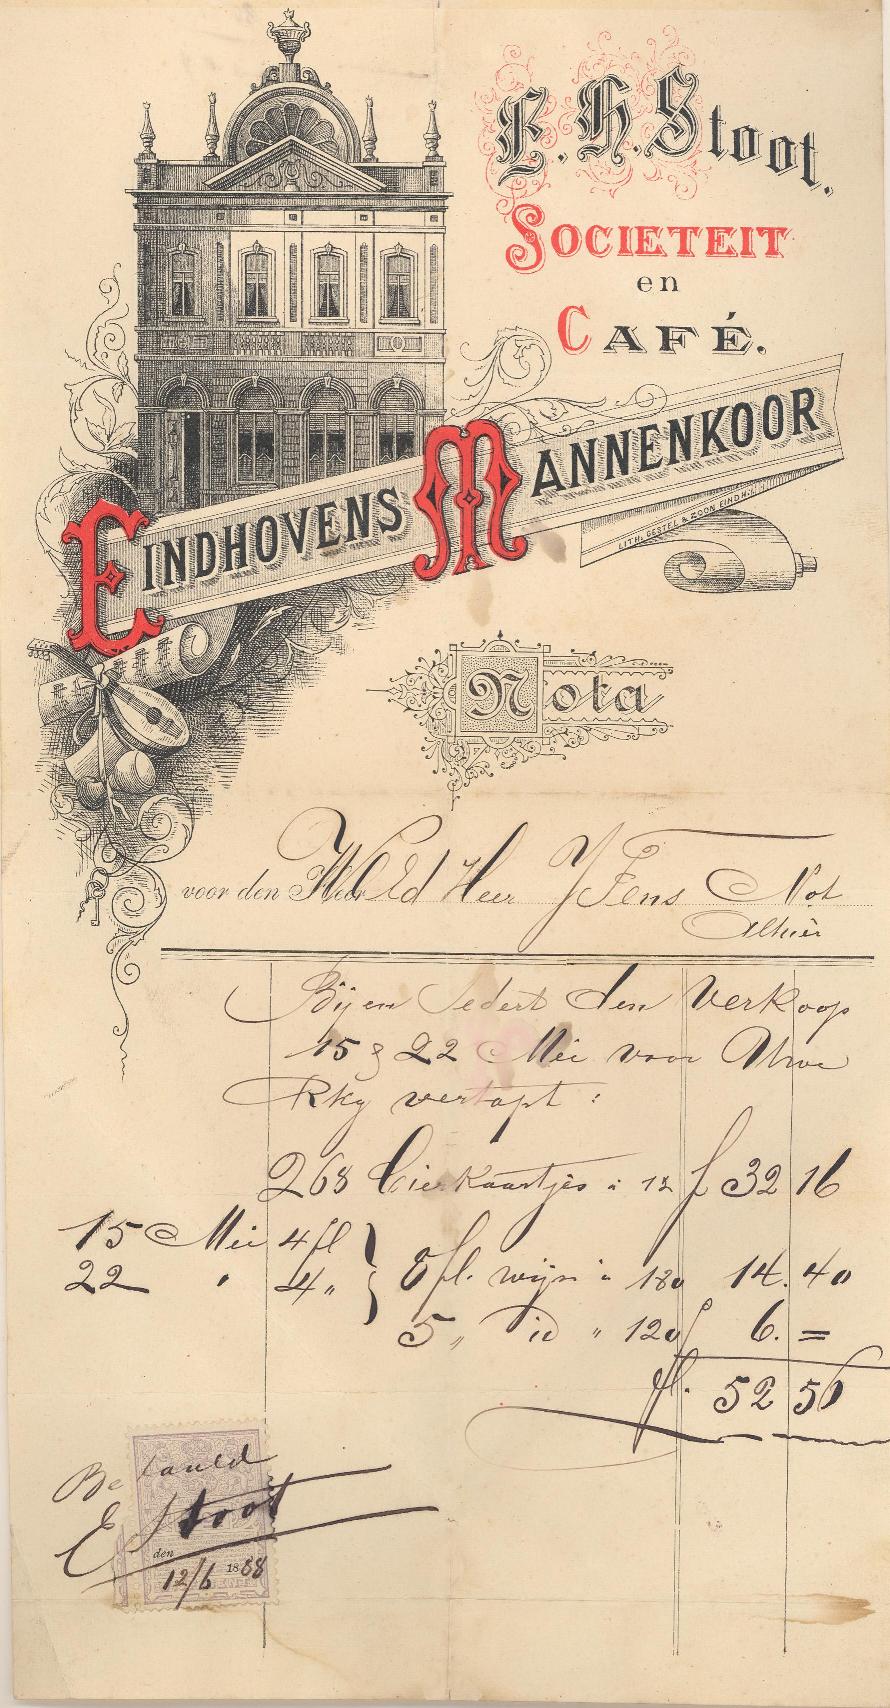 E. H. Stoot.
SOCIETEIT
en
CAFÉ.
EINDHOVENS MANNENKOOR
LITH. GESTEL & ZOON EINDH.
Nota
voor den Heer WelEd Heer J Fens Not
Alhier
Bij en Sedert den verkoop
15 & 22 Mei voor Uwe
Rkg vertapt :
268 Bierkaartjes à 12 f 32 16
15 Mei 4 fl
22 " 4 " } 8 fl. wijn à 180 14.40
5 " id " 120 f 6. =
fl. 52 56
Betaald
E Stoot
den
12/6 1888
CENT